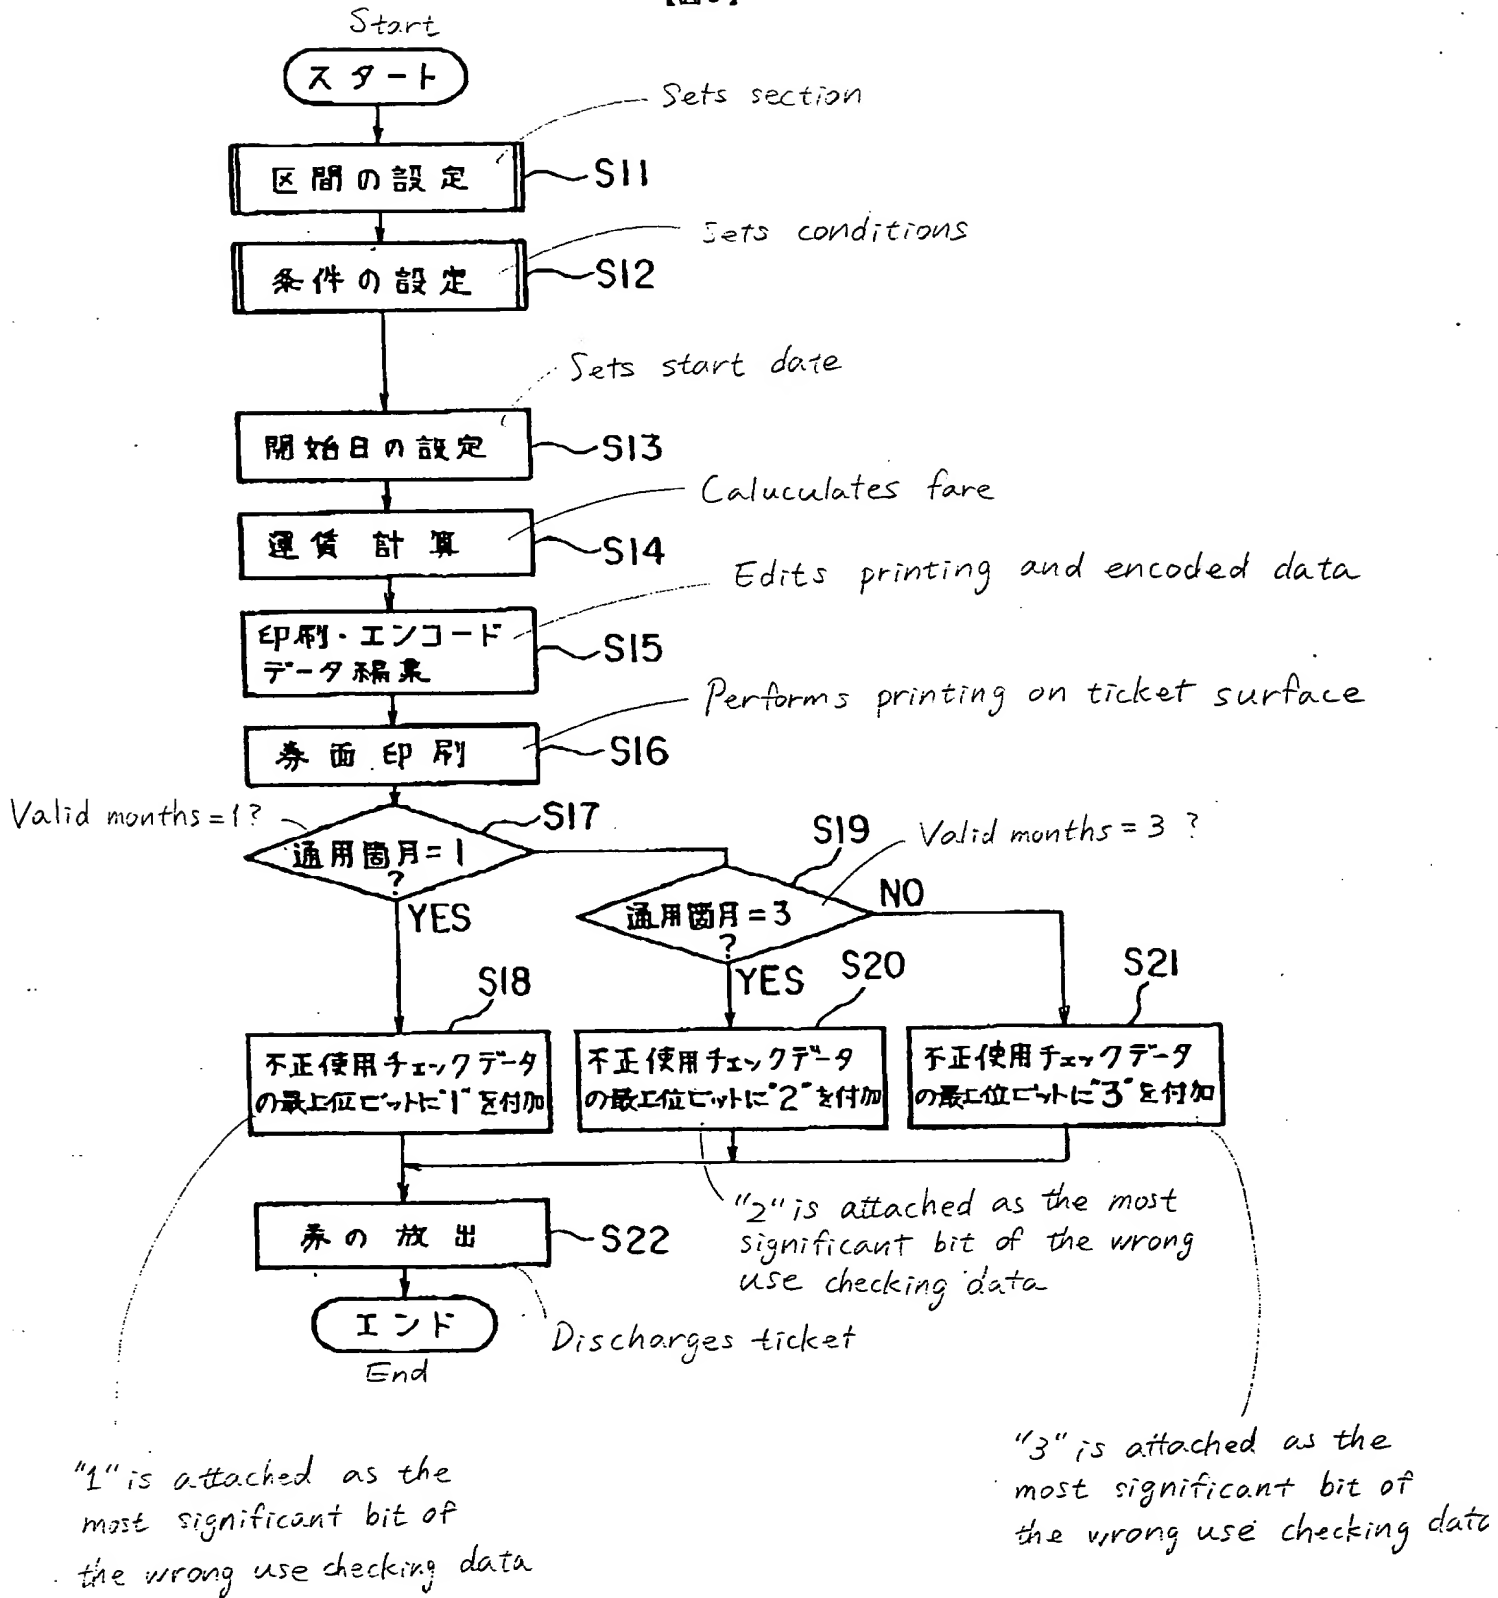 Start
スタート
Sets section
区間の設定
S11
Sets conditions
条件の設定
S12
Sets start date
開始日の設定
S13
Caluculates fare
運賃計算
S14
Edits printing and encoded data
印刷・エンコード
データ編集
S15
Performs printing on ticket surface
券面印刷
S16
Valid months=1?
通用箇月=1
?
S17
YES
S19
Valid months=3 ?
通用箇月=3
?
NO
YES
S18
不正使用チェックデータ
の最上位ビットに"1"を付加
S20
不正使用チェックデータ
の最上位ビットに"2"を付加
S21
不正使用チェックデータ
の最上位ビットに"3"を付加
"2" is attached as the most
significant bit of the wrong
use checking data
券の放出
S22
Discharges ticket
エンド
End
"1" is attached as the
most significant bit of
the wrong use checking data
"3" is attached as the
most significant bit of
the wrong use checking data